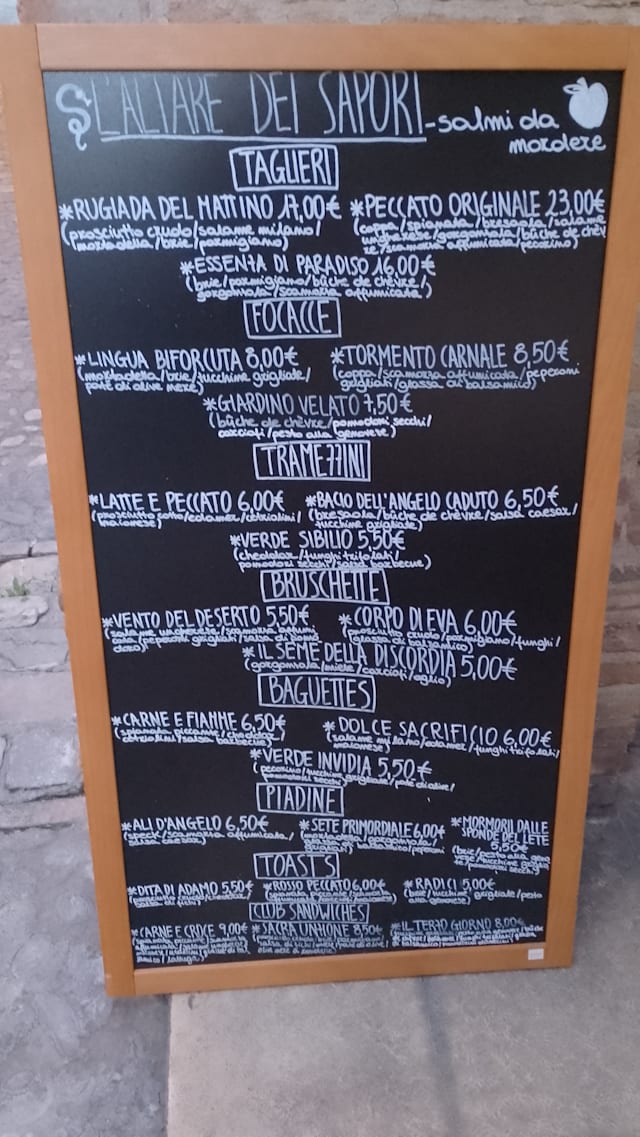 L'ALTARE DEI SAPORI - salmi da mordere
TAGLIERI
*RUGIADA DEL MATTINO 17,00€
(prosciutto crudo/salame milano/
mortadella/brie/parmigiano)
*PECCATO ORIGINALE 23,00€
(coppa/spianata/bresaola/salame
ungherese/gorgonzola/bûche de chèv
re/scamorza affumicata/pecorino)
*ESSENZA DI PARADISO 16,00€
(brie/parmigiano/bûche de chèvre/
gorgonzola/scamorza affumicata)
FOCACCE
*LINGUA BIFORCUTA 8,00€
(mortadella/brie/zucchine grigliate/
paté di olive nere)
*TORMENTO CARNALE 8,50€
(coppa/scamorza affumicata/peperoni
grigliati/glassa di balsamico)
*GIARDINO VELATO 7,50€
(bûche de chèvre/pomodori secchi/
carciofi/pesto alla genovese)
TRAMEZZINI
*LATTE E PECCATO 6,00€
(prosciutto cotto/edamer/cetriolini/
maionese)
*BACIO DELL'ANGELO CADUTO 6,50€
(bresaola/bûche de chèvre/salsa caesar/
zucchine grigliate)
*VERDE SIBILIO 5,50€
(cheddar/funghi trifolati/
pomodori secchi/salsa barbecue)
BRUSCHETTE
*VENTO DEL DESERTO 5,50€
(salame ungherese/scamorza affumi
cata/peperoni grigliati/salsa di pomo
doro)
*CORPO DI EVA 6,00€
(prosciutto crudo/parmigiano/funghi/
glassa di balsamico)
*IL SEME DELLA DISCORDIA 5,00€
(gorgonzola/miele/carciofi/aglio)
BAGUETTES
*CARNE E FIAMME 6,50€
(spianata piccante/cheddar/
cetriolini/salsa barbecue)
*DOLCE SACRIFICIO 6,00€
(salame milano/edamer/funghi trifolati/
maionese)
*VERDE INVIDIA 5,50€
(pecorino/zucchine grigliate/paté di olive/
pomodori secchi)
PIADINE
*ALI D'ANGELO 6,50€
(speck/scamorza affumicata/
salsa caesar)
*SETE PRIMORDIALE 6,00€
(mortadella/gorgonzola/
balsamico/peperoni
grigliati)
*MORMORII DALLE
SPONDE DEL LETE
5,50€
(brie/pesto alla geno
vese/zucchine griglia
te/pomodori secchi)
TOASTS
*DITA DI ADAMO 5,50€
(prosciutto crudo/cheddar/
salsa di fichi)
*ROSSO PECCATO 6,00€
(spianata piccante/scamorza
affumicata/
*RADICI 5,00€
(brie/zucchine grigliate/pesto
alla genovese)
CLUB SANDWICHES
*CARNE E CROCE 9,00€
(spianata piccante/scamorza
*SACRA UNZIONE 8,50€
*IL TERZO GIORNO 8,00€